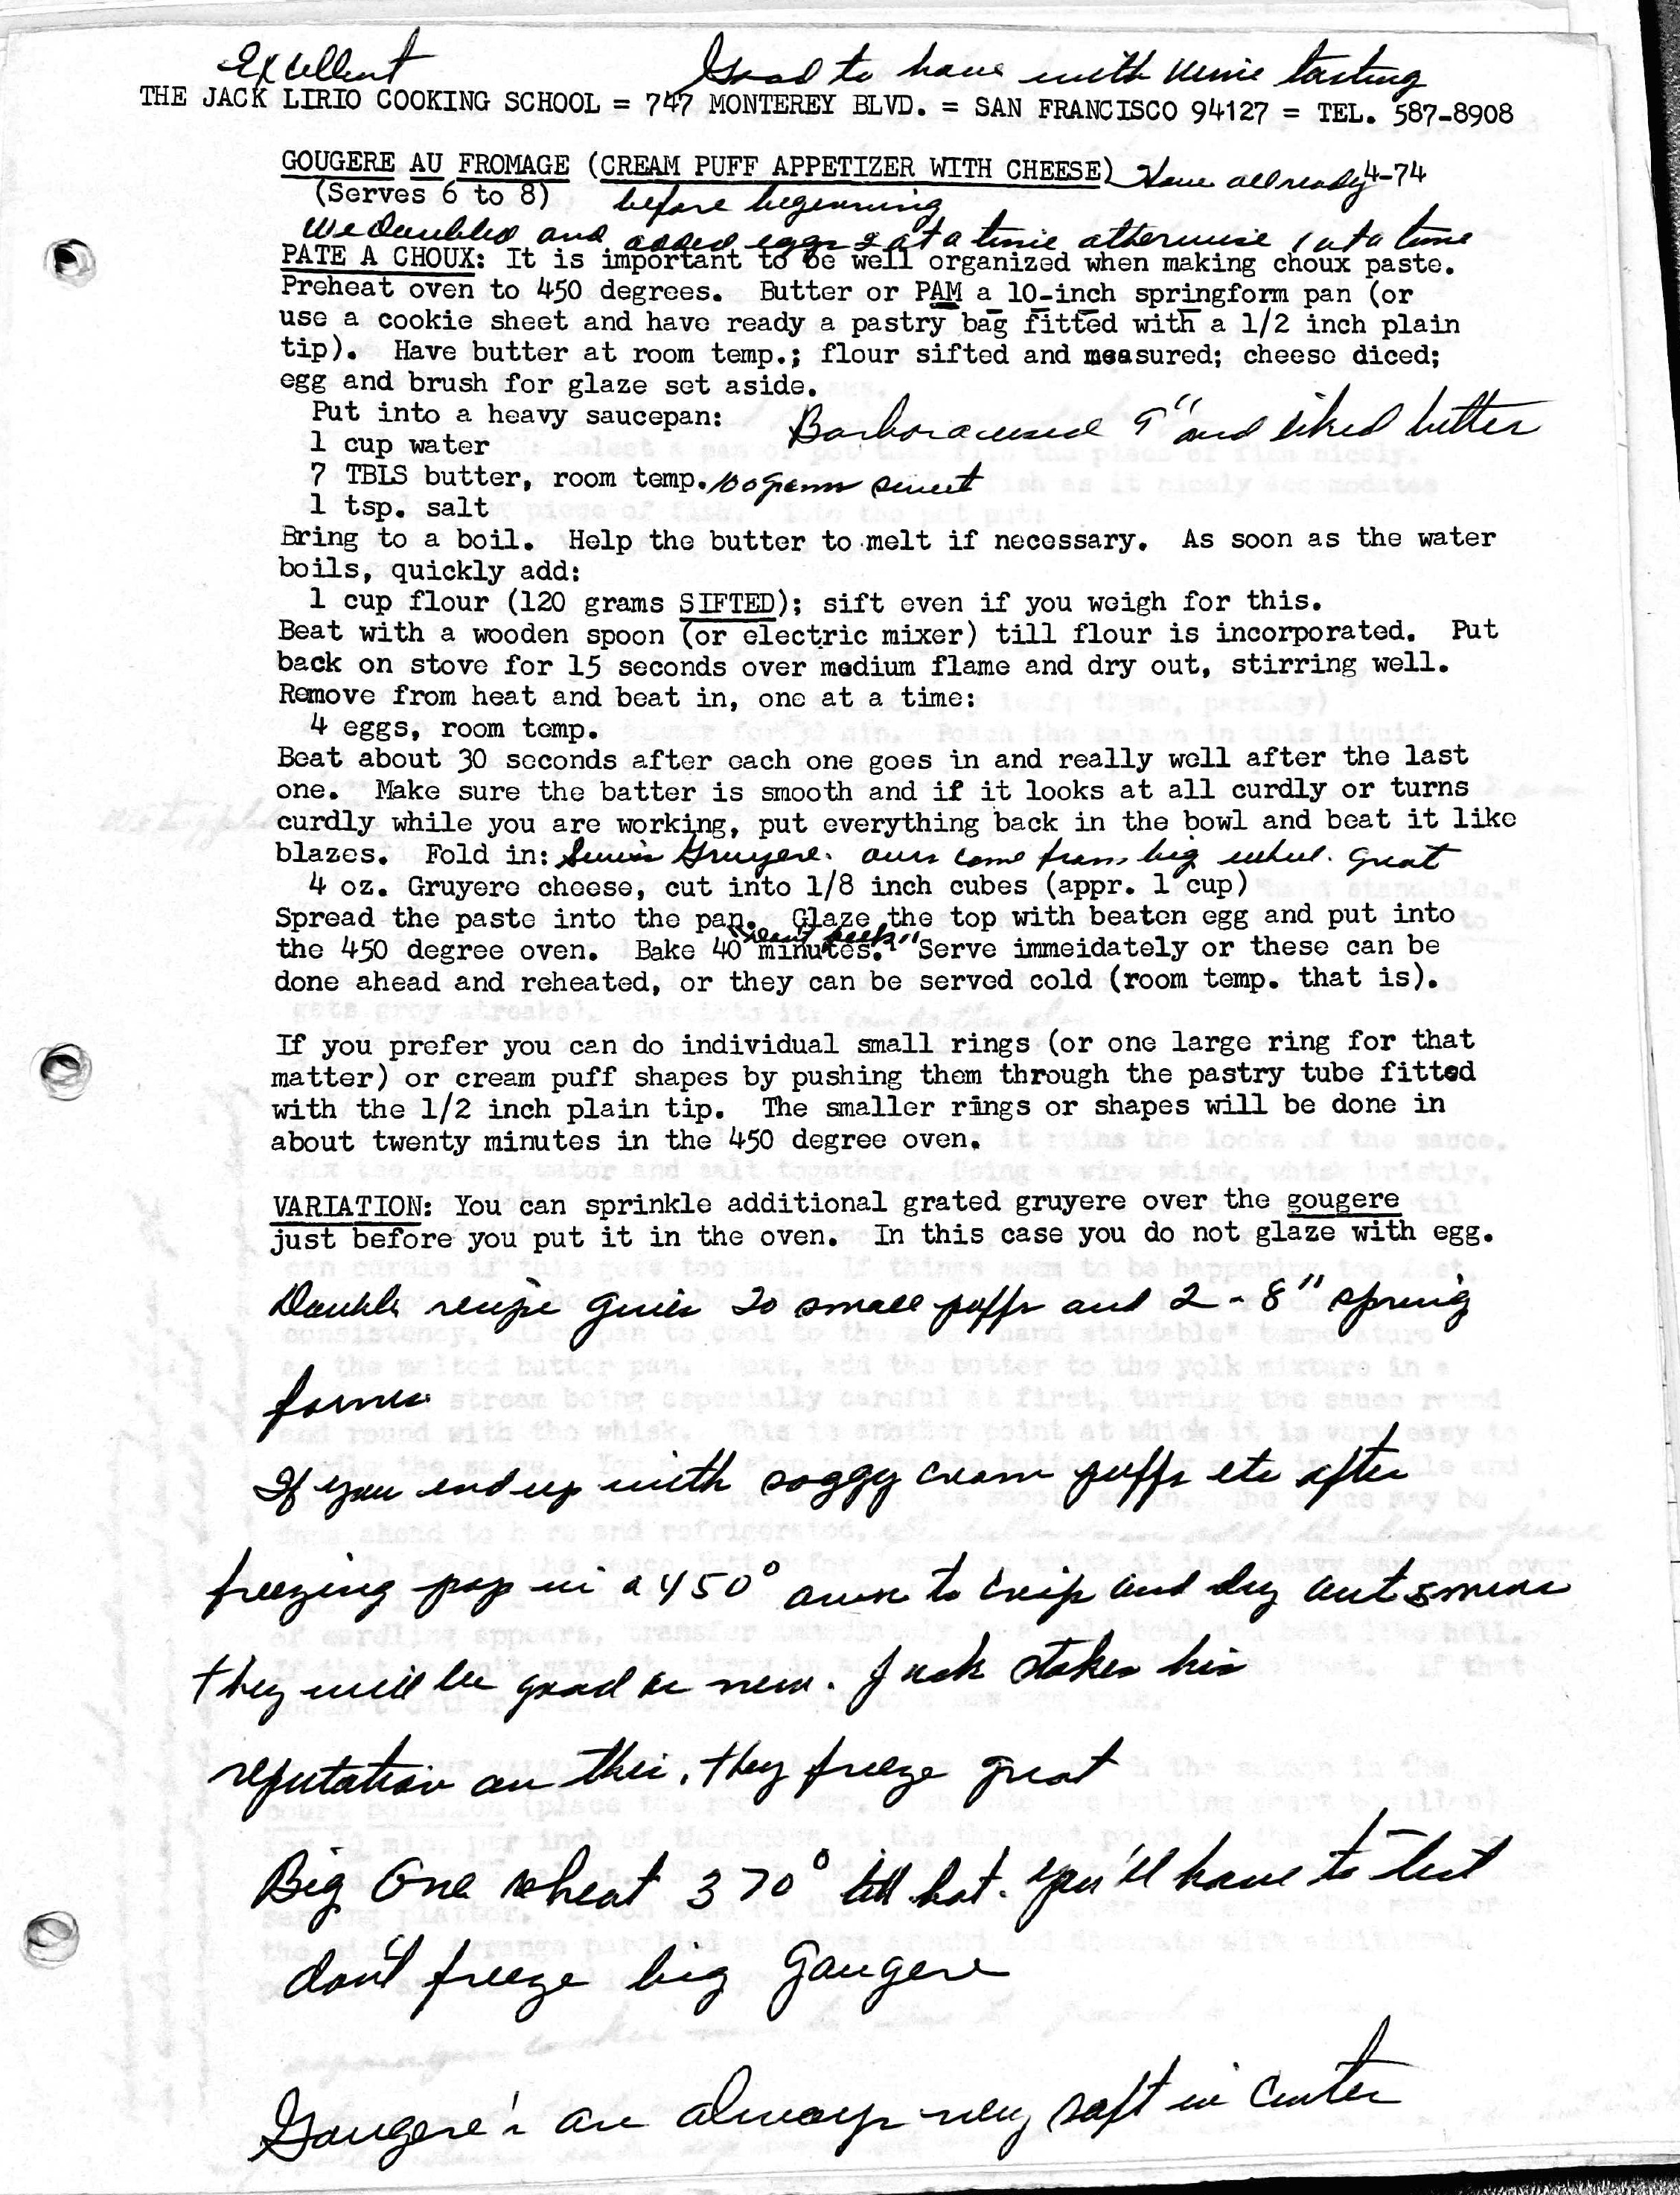 Excellent Good to have with wine tasting
THE JACK LIRIO COOKING SCHOOL = 747 MONTEREY BLVD. = SAN FRANCISCO 94127 = TEL. 587-8908
GOUGERE AU FROMAGE (CREAM PUFF APPETIZER WITH CHEESE) Have all ready 4-74
(Serves 6 to 8) before beginning
We doubled and added eggs 2 at a time otherwise 1 at a time
PATE A CHOUX: It is important to be well organized when making choux paste.
Preheat oven to 450 degrees. Butter or PAM a 10-inch springform pan (or
use a cookie sheet and have ready a pastry bag fitted with a 1/2 inch plain
tip). Have butter at room temp.; flour sifted and measured; cheese diced;
egg and brush for glaze set aside.
Put into a heavy saucepan: Barbara used 9" and liked better
1 cup water
7 TBLS butter, room temp. 100 grams sweet
1 tsp. salt
Bring to a boil. Help the butter to melt if necessary. As soon as the water
boils, quickly add:
1 cup flour (120 grams SIFTED); sift even if you weigh for this.
Beat with a wooden spoon (or electric mixer) till flour is incorporated. Put
back on stove for 15 seconds over medium flame and dry out, stirring well.
Remove from heat and beat in, one at a time:
4 eggs, room temp.
Beat about 30 seconds after each one goes in and really well after the last
one. Make sure the batter is smooth and if it looks at all curdly or turns
curdly while you are working, put everything back in the bowl and beat it like
blazes. Fold in: Swiss Gruyere. ours came from big wheel. great
4 oz. Gruyere cheese, cut into 1/8 inch cubes (appr. 1 cup)
Spread the paste into the pan. Glaze the top with beaten egg and put into
"don't peek"
the 450 degree oven. Bake 40 minutes. Serve immeidately or these can be
done ahead and reheated, or they can be served cold (room temp. that is).
If you prefer you can do individual small rings (or one large ring for that
matter) or cream puff shapes by pushing them through the pastry tube fitted
with the 1/2 inch plain tip. The smaller rings or shapes will be done in
about twenty minutes in the 450 degree oven.
VARIATION: You can sprinkle additional grated gruyere over the gougere
just before you put it in the oven. In this case you do not glaze with egg.
Double recipe gives 20 small puffs and 2 - 8" spring
forms
If you end up with soggy cream puffs etc after
freezing pop in a 450° oven to crisp and dry out 5 mins
they will be good as new. Jack stakes his
reputation on this. they freeze great
Big One reheat 370° till hot. you'll have to test
don't freeze big Gougere
Gougere's are always very soft in center